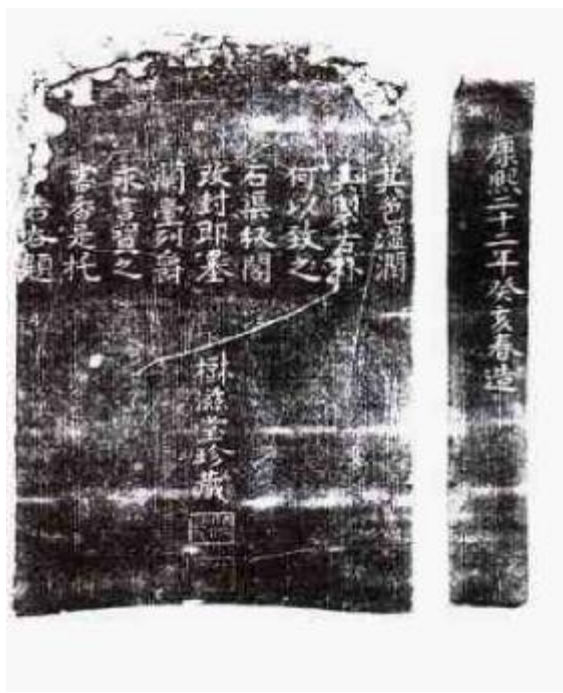 康熙二十二年癸亥春造
其色溫潤
其製古朴
何以致之
石渠秘閣
改封即墨
蘭臺列爵
永之
書香是托
題
樹滋堂珍藏